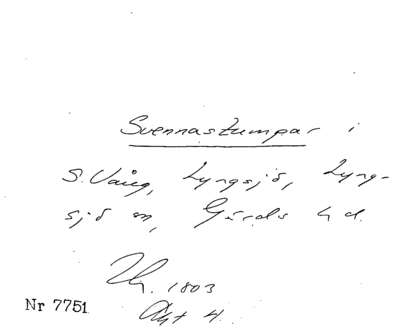 Svennastumpar i
S. Vång, Lyngsjö, Lyng-
sjö sn, Gärds hd.
1803
Akt 4.
Nr 7751